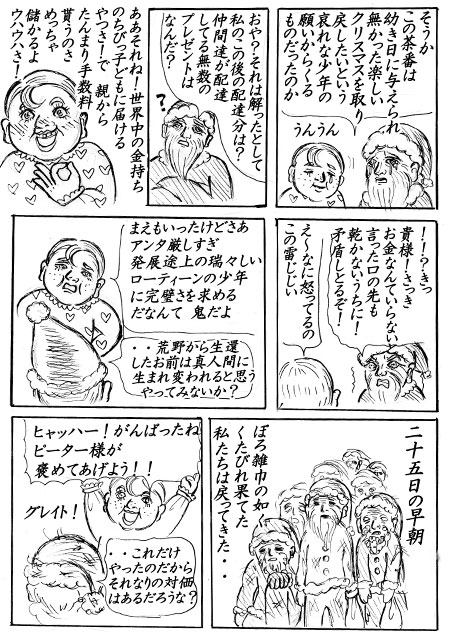 そうか
この茶番は
幼き日に与えられ
無かった楽しい
クリスマスを取り
戻したいという
哀れな少年の
願いからくる
ものだったのか
うんうん
おや?それは解ったとして
私のこの後の配達分は?
仲間達が配達
してる無数の
プレゼントは
なんだ?
ああそれね!世界中の金持ち
のちびっ子どもに届ける
やつさーで 親から
たんまり手数料
貰うのさ
めっちゃ
儲かるよ
ウハウハさ!
!!?きっ
貴様!さっき
お金なんていらないと
言った口の先も
乾かないうちに!
矛盾しとるぞ!
え〜なに怒ってるの
この雷じじい
まえもいったけどさあ
アンタ厳しすぎ
発展途上の瑞々しい
ローティーンの少年
に完璧さを求める
だなんて 鬼だよ
・・荒野から生還
したお前は真人間に
生まれ変われると思う
やってみないか?
二十五日の早朝
ぼろ雑巾の如く
くたびれ果てた
私たちは戻ってきた・・
ヒャッハー!がんばったね
ピーター様が
褒めてあげよう!!
グレイト!
・・これだけ
やったのだから
それなりの対価
はあるだろうな?